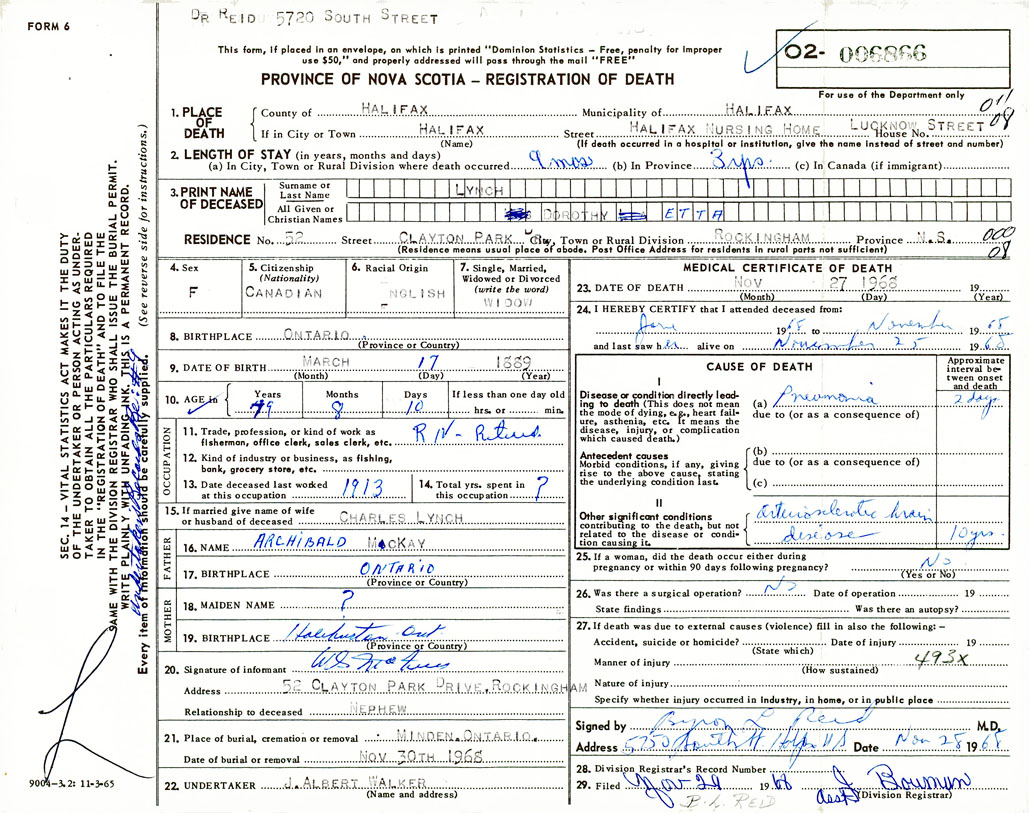 DR REID 5720 SOUTH STREET
FORM 6
This form, if placed in an envelope, on which is printed "Dominion Statistics – Free, penalty for improper
use $50," and properly addressed will pass through the mail "FREE"
PROVINCE OF NOVA SCOTIA – REGISTRATION OF DEATH
02- 006866
For use of the Department only
011
08
1. PLACE OF DEATH
County of HALIFAX Municipality of HALIFAX
If in City or Town HALIFAX Street HALIFAX NURSING HOME LUCKNOW STREET House No.
(Name) (If death occurred in a hospital or institution, give the name instead of street and number)
2. LENGTH OF STAY (in years, months and days)
(a) In City, Town or Rural Division where death occurred 9 mos (b) In Province 3 yrs. (c) In Canada (if immigrant)
3. PRINT NAME OF DECEASED
Surname or Last Name LYNCH
All Given or Christian Names DOROTHY ETTA
RESIDENCE No. 52 Street CLAYTON PARK City, Town or Rural Division ROCKINGHAM Province N.S.
(Residence means usual place of abode. Post Office Address for residents in rural parts not sufficient)
000
08
4. Sex
F
5. Citizenship
(Nationality)
CANADIAN
6. Racial Origin
ENGLISH
7. Single, Married,
Widowed or Divorced
(write the word)
WIDOW
8. BIRTHPLACE ONTARIO
(Province or Country)
9. DATE OF BIRTH MARCH 17 1889
(Month) (Day) (Year)
10. AGE in Years Months Days If less than one day old
79 8 10 hrs. or min.
OCCUPATION
11. Trade, profession, or kind of work as
fisherman, office clerk, sales clerk, etc. RN - Retired.
12. Kind of industry or business, as fishing,
bank, grocery store, etc.
13. Date deceased last worked
at this occupation 1913
14. Total yrs. spent in
this occupation ?
15. If married give name of wife
or husband of deceased CHARLES LYNCH
FATHER
16. NAME ARCHIBALD MacKAY
17. BIRTHPLACE ONTARIO
(Province or Country)
MOTHER
18. MAIDEN NAME ?
19. BIRTHPLACE Haliburton Ont
(Province or Country)
20. Signature of informant
Address 52 CLAYTON PARK DRIVE, ROCKINGHAM
Relationship to deceased NEPHEW
21. Place of burial, cremation or removal MINDEN, ONTARIO.
Date of burial or removal NOV 30TH 1968
22. UNDERTAKER J. ALBERT WALKER
(Name and address)
MEDICAL CERTIFICATE OF DEATH
23. DATE OF DEATH NOV 27 1968 19
(Month) (Day) (Year)
24. I HEREBY CERTIFY that I attended deceased from:
June 1968 to November 1968
and last saw her alive on November 25 1968
CAUSE OF DEATH
Approximate
interval be-
tween onset
and death
I
Disease or condition directly lead-
ing to death (This does not mean
the mode of dying, e.g., heart fail-
ure, asthenia, etc. It means the
disease, injury, or complication
which caused death.)
(a) Pneumonia 2 days
due to (or as a consequence of)
Antecedent causes
Morbid conditions, if any, giving
rise to the above cause, stating
the underlying condition last.
(b)
due to (or as a consequence of)
(c)
II
Other significant conditions
contributing to the death, but not
related to the disease or condi-
tion causing it.
arteriosclerotic brain
disease 10 yrs.
25. If a woman, did the death occur either during
pregnancy or within 90 days following pregnancy? No
(Yes or No)
26. Was there a surgical operation? No Date of operation 19
State findings Was there an autopsy?
27. If death was due to external causes (violence) fill in also the following: –
Accident, suicide or homicide? Date of injury 19
(State which)
Manner of injury 493x
(How sustained)
Nature of injury
Specify whether injury occurred in Industry, in home, or in public place
Signed by Byron L Reid M.D.
Address Date Nov 28 1968
28. Division Registrar's Record Number
29. Filed Nov 29 1968 J Bowmyn
(Division Registrar)
B. L. REID
SEC. 14 – VITAL STATISTICS ACT MAKES IT THE DUTY
OF THE UNDERTAKER OR PERSON ACTING AS UNDER-
TAKER TO OBTAIN ALL THE PARTICULARS REQUIRED
IN THE "REGISTRATION OF DEATH" AND TO FILE THE
SAME WITH THE DIVISION REGISTRAR WHO SHALL ISSUE THE BURIAL PERMIT.
WRITE PLAINLY WITH UNFADING INK. THIS IS A PERMANENT RECORD.
Every item of information should be carefully supplied. (See reverse side for instructions.)
9004-3.2: 11-3-65